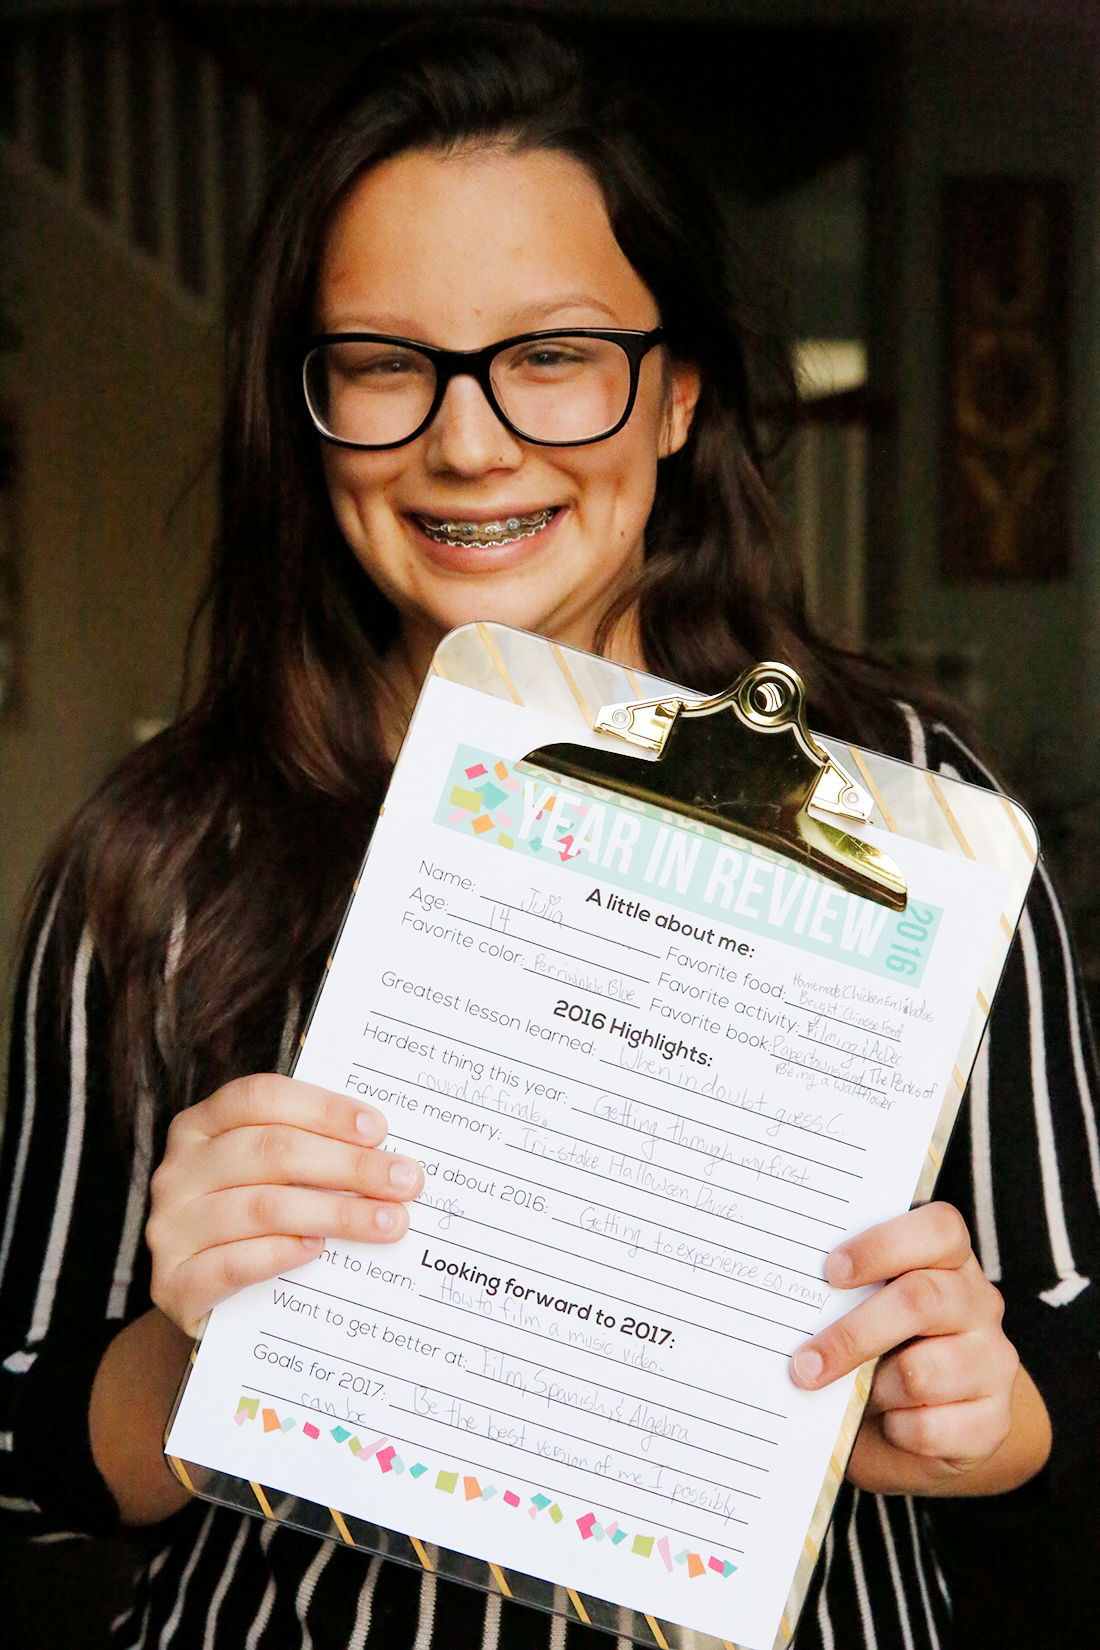 YEAR IN REVIEW 2016
A little about me:
Name: Julia
Age: 14
Favorite color: Perriwinkle Blue
Favorite food: Homemade: Chicken Enchiladas
Bought: Chinese Food
Favorite activity: Filming & AcDec
Favorite book: Papertowns and The Perks of
Being a wallflower
2016 Highlights:
Greatest lesson learned: When in doubt guess C.
Hardest thing this year: Getting through my first
round of finals.
Favorite memory: Tri-stake Halloween Dance.
ed about 2016: Getting to experience so many
hings.
Looking forward to 2017:
nt to learn: How to film a music video.
Want to get better at: Film, Spanish, & Algebra
Goals for 2017: Be the best version of me I possibly
can be